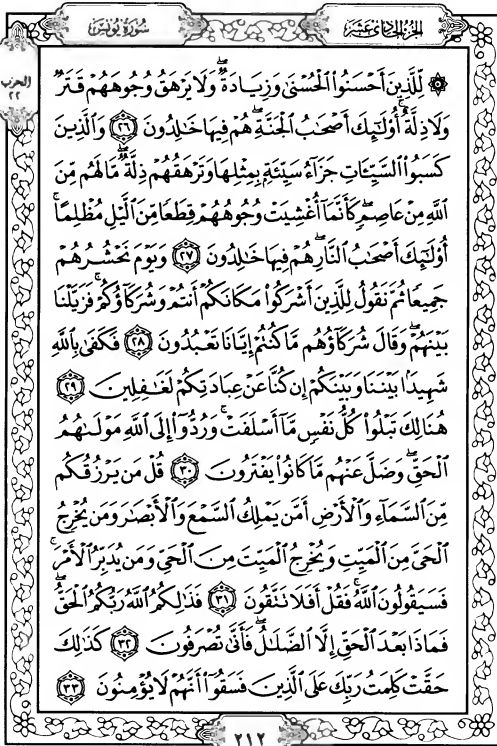 سُورَةُ يُونُسَ
الجُزْءُ الحَادِي عَشَرَ
الحزب
٢٢
۞ لِّلَّذِينَ أَحۡسَنُواْ ٱلۡحُسۡنَىٰ وَزِيَادَةٞۖ وَلَا يَرۡهَقُ وُجُوهَهُمۡ قَتَرٞ
وَلَا ذِلَّةٌۚ أُوْلَـٰٓئِكَ أَصۡحَٰبُ ٱلۡجَنَّةِۖ هُمۡ فِيهَا خَٰلِدُونَ ٢٦ وَٱلَّذِينَ
كَسَبُواْ ٱلسَّيِّـَٔاتِ جَزَآءُ سَيِّئَةِۭ بِمِثۡلِهَا وَتَرۡهَقُهُمۡ ذِلَّةٞۖ مَّا لَهُم مِّنَ
ٱللَّهِ مِنۡ عَاصِمٖۖ كَأَنَّمَآ أُغۡشِيَتۡ وُجُوهُهُمۡ قِطَعٗا مِّنَ ٱلَّيۡلِ مُظۡلِمًاۚ
أُوْلَـٰٓئِكَ أَصۡحَٰبُ ٱلنَّارِۖ هُمۡ فِيهَا خَٰلِدُونَ ٢٧ وَيَوۡمَ نَحۡشُرُهُمۡ
جَمِيعٗا ثُمَّ نَقُولُ لِلَّذِينَ أَشۡرَكُواْ مَكَانَكُمۡ أَنتُمۡ وَشُرَكَآؤُكُمۡۚ فَزَيَّلۡنَا
بَيۡنَهُمۡۖ وَقَالَ شُرَكَآؤُهُم مَّا كُنتُمۡ إِيَّانَا تَعۡبُدُونَ ٢٨ فَكَفَىٰ بِٱللَّهِ
شَهِيدَۢا بَيۡنَنَا وَبَيۡنَكُمۡ إِن كُنَّا عَنۡ عِبَادَتِكُمۡ لَغَٰفِلِينَ ٢٩
هُنَالِكَ تَبۡلُواْ كُلُّ نَفۡسٖ مَّآ أَسۡلَفَتۡۚ وَرُدُّوٓاْ إِلَى ٱللَّهِ مَوۡلَىٰهُمُ
ٱلۡحَقِّۖ وَضَلَّ عَنۡهُم مَّا كَانُواْ يَفۡتَرُونَ ٣٠ قُلۡ مَن يَرۡزُقُكُم
مِّنَ ٱلسَّمَآءِ وَٱلۡأَرۡضِ أَمَّن يَمۡلِكُ ٱلسَّمۡعَ وَٱلۡأَبۡصَٰرَ وَمَن يُخۡرِجُ
ٱلۡحَيَّ مِنَ ٱلۡمَيِّتِ وَيُخۡرِجُ ٱلۡمَيِّتَ مِنَ ٱلۡحَيِّ وَمَن يُدَبِّرُ ٱلۡأَمۡرَۚ
فَسَيَقُولُونَ ٱللَّهُۚ فَقُلۡ أَفَلَا تَتَّقُونَ ٣١ فَذَٰلِكُمُ ٱللَّهُ رَبُّكُمُ ٱلۡحَقُّۖ
فَمَاذَا بَعۡدَ ٱلۡحَقِّ إِلَّا ٱلضَّلَٰلُۖ فَأَنَّىٰ تُصۡرَفُونَ ٣٢ كَذَٰلِكَ
حَقَّتۡ كَلِمَتُ رَبِّكَ عَلَى ٱلَّذِينَ فَسَقُوٓاْ أَنَّهُمۡ لَا يُؤۡمِنُونَ ٣٣
٢١٢